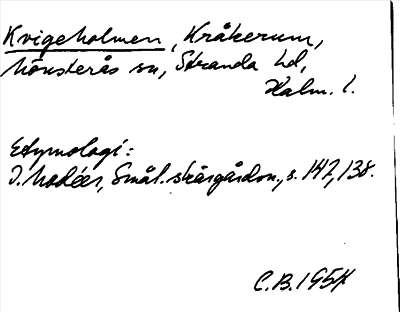 Kvigeholmen, Kråkerum,
Mönsterås sn, Stranda hd,
Kalm. l.
Etymologi:
I. Modéer, Smål. skärgårdsn., s. 142, 138.
C.B. 1954